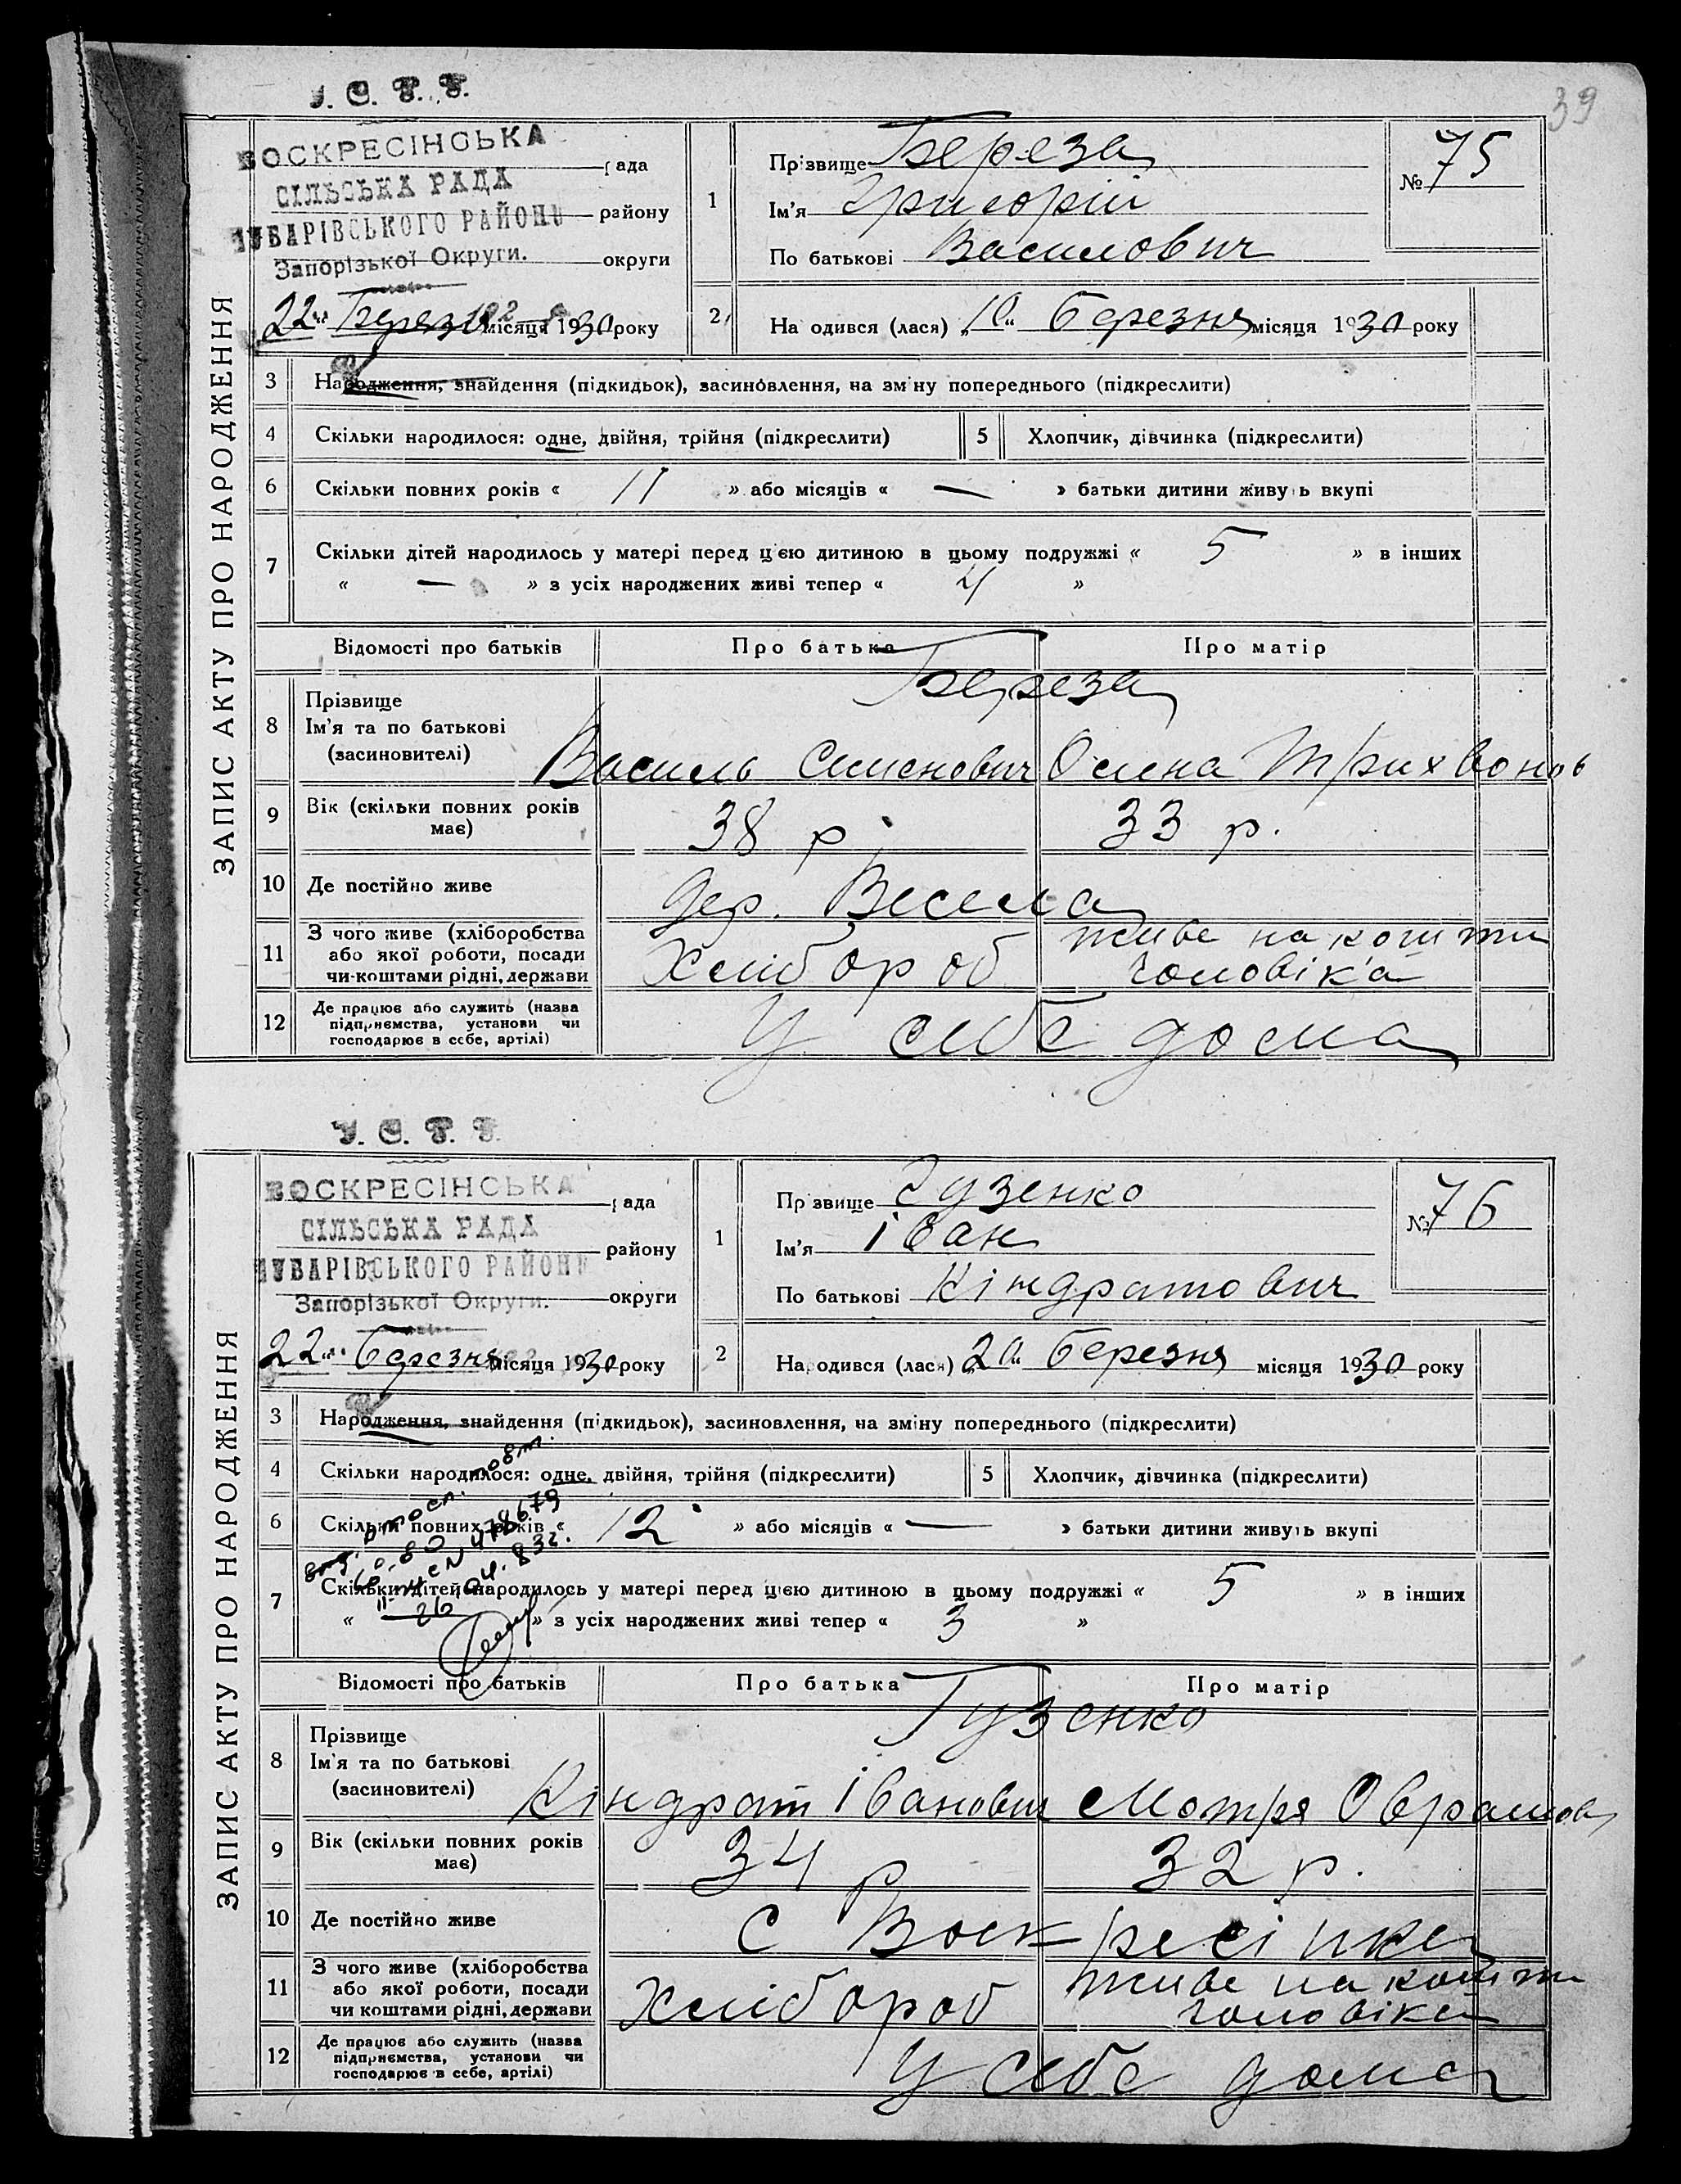 39
У. С. Р. Р.
ЗАПИС АКТУ ПРО НАРОДЖЕННЯ
ВОСКРЕСІНСЬКА рада
СІЛЬСЬКА РАДА
ЧУБАРІВСЬКОГО РАЙОНУ району
Запорізької Округи. округи
"22" Березня місяця 1930 року
1 Прізвище Береза
Ім'я Григорій
По батькові Василович
№ 75
2 Народився (лася) "10" березня місяця 1930 року
3 Народження, знайдення (підкидьок), засиновлення, на зміну попереднього (підкреслити)
4 Скільки народилося: одне, двійня, трійня (підкреслити) 5 Хлопчик, дівчинка (підкреслити)
6 Скільки повних років « 11 » або місяців « — » батьки дитини живуть вкупі
7 Скільки дітей народилось у матері перед цією дитиною в цьому подружжі « 5 » в інших
« — » з усіх народжених живі тепер « 4 »
Відомості про батьків Про батька Про матір
8 Прізвище Береза
Ім'я та по батькові
(засиновителі) Василь Семенович Олена Трихвонов
9 Вік (скільки повних років має) 38 р. 33 р.
10 Де постійно живе дер. Весела
11 З чого живе (хліборобства
або якої роботи, посади
чи коштами рідні, держави Хлібороб живе на кошти чоловіка
12 Де працює або служить (назва
підприємства, установи чи
господарює в себе, артілі) У себе дома
У. С. Р. Р.
ЗАПИС АКТУ ПРО НАРОДЖЕННЯ
ВОСКРЕСІНСЬКА рада
СІЛЬСЬКА РАДА
ЧУБАРІВСЬКОГО РАЙОНУ району
Запорізької Округи. округи
"22" березня місяця 1930 року
1 Прізвище Гузенко
Ім'я Іван
По батькові Кіндратович
№ 76
2 Народився (лася) "20" березня місяця 1930 року
3 Народження, знайдення (підкидьок), засиновлення, на зміну попереднього (підкреслити)
4 Скільки народилося: одне, двійня, трійня (підкреслити) 5 Хлопчик, дівчинка (підкреслити)
6 Скільки повних років « 12 » або місяців « — » батьки дитини живуть вкупі
7 Скільки дітей народилось у матері перед цією дитиною в цьому подружжі « 5 » в інших
« » з усіх народжених живі тепер « 3 »
повт.
478679
26.04.83г.
Відомості про батьків Про батька Про матір
8 Прізвище Гузенко
Ім'я та по батькові
(засиновителі) Кіндрат Іванович Мотря Оврамов
9 Вік (скільки повних років має) 34 р 32 р.
10 Де постійно живе с Воскресінка
11 З чого живе (хліборобства
або якої роботи, посади
чи коштами рідні, держави Хлібороб живе на кошти чоловіка
12 Де працює або служить (назва
підприємства, установи чи
господарює в себе, артілі) У себе дома